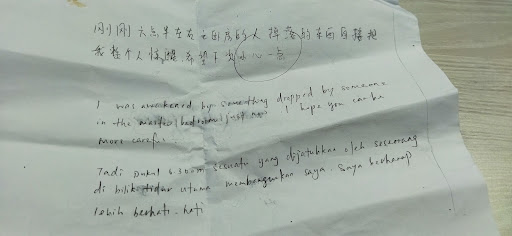 刚刚六点半左右主卧房的人掉落的东西直接把
我整个人惊醒.希望下次小心一点
I was awakened by something dropped by someone
in the master bedroom just now. I hope you can be
more careful.
Tadi pukul 6.30am sesuatu yang dijatuhkan oleh seseorang
di bilik tidur utama membangunkan saya. Saya berharap
lebih berhati-hati